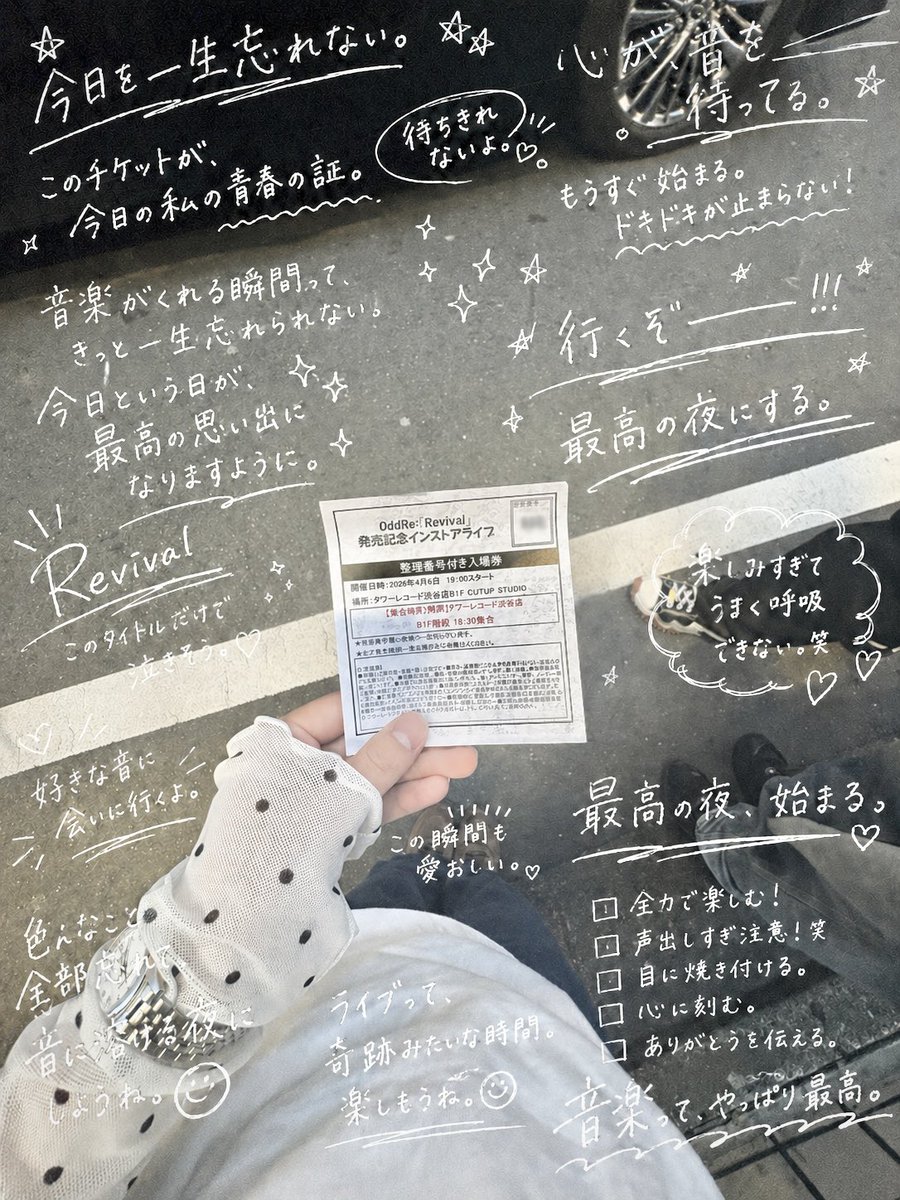 今日を一生忘れない。
このチケットが、
今日の私の青春の証。
待ちきれ
ないよ。
心が、音を
待ってる。
もうすぐ始まる。
ドキドキが止まらない!
音楽がくれる瞬間って、
きっと一生忘れられない。
今日という日が、
最高の思い出に
なりますように。
行くぞーー!!!
最高の夜にする。
Revival
このタイトルだけで
泣きそう。
OddRe:「Revival」
発売記念インストアライブ
整理番号付き入場券
開催日時:2026年4月6日 19:00スタート
場所:タワーレコード渋谷店B1F CUTUP STUDIO
タワーレコード渋谷店
B1F階段 18:30集合
楽しみすぎて
うまく呼吸
できない。笑
好きな音に
会いに行くよ。
この瞬間も
愛おしい。
最高の夜、始まる。
全力で楽しむ!
声出しすぎ注意!笑
目に焼き付ける。
心に刻む。
ありがとうを伝える。
色んなこと
全部忘れて
音に溶ける夜に
しようね。
ライブって、
奇跡みたいな時間。
楽しもうね。
音楽って、やっぱり最高。